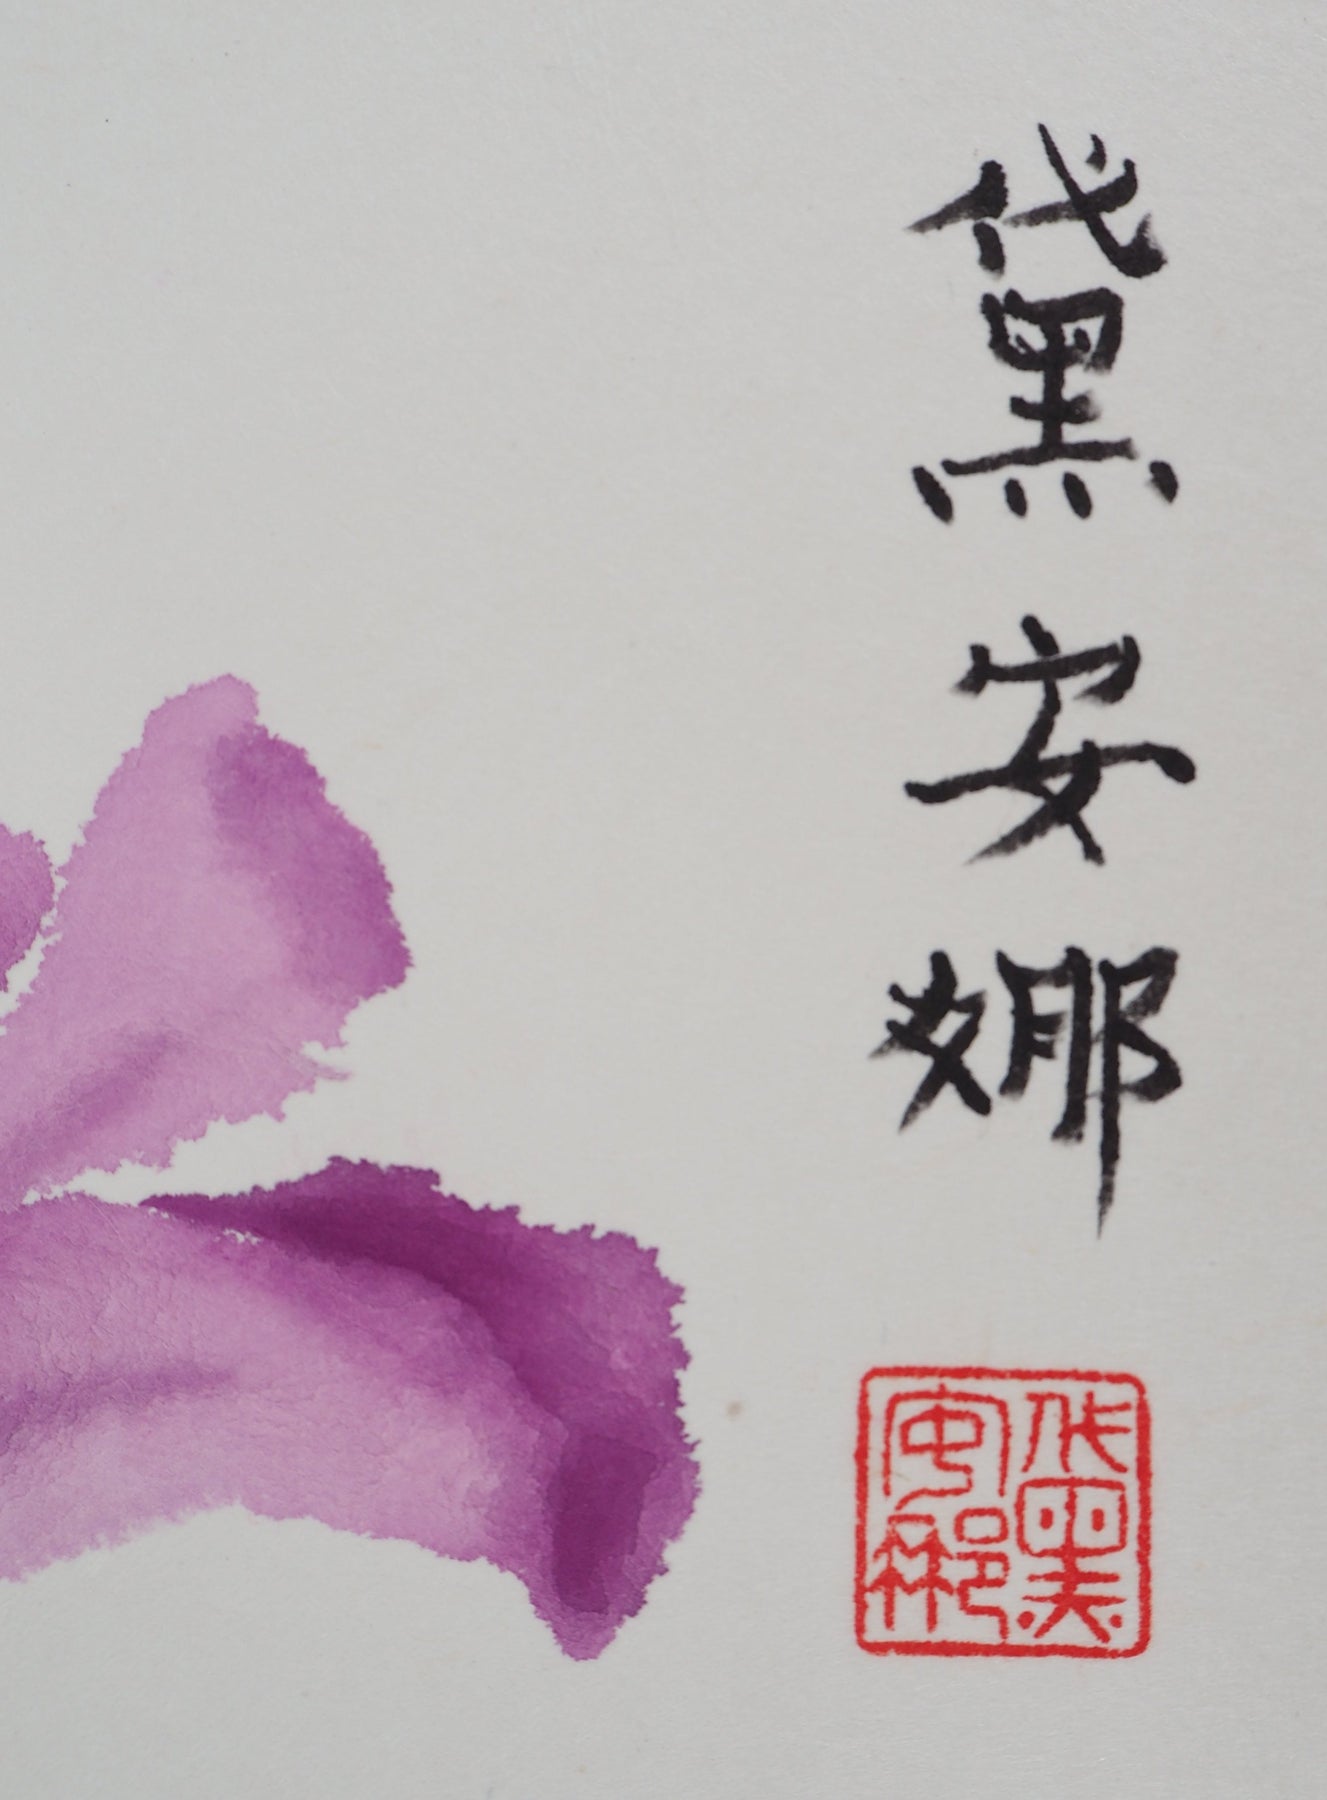 黛安娜
黛安娜